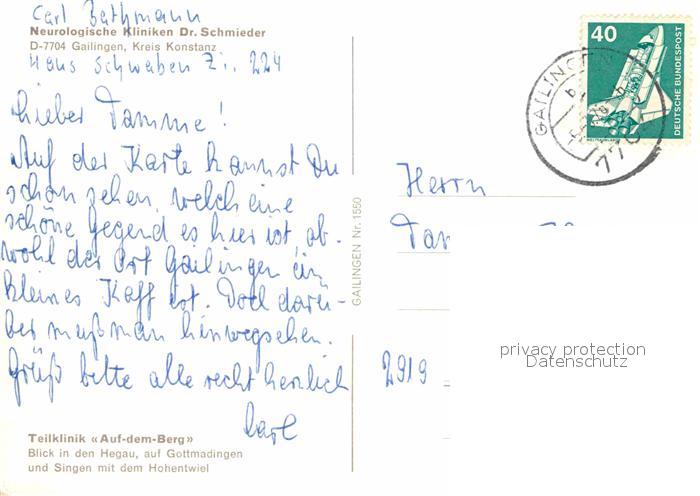 Carl Bathmann
Neurologische Kliniken Dr. Schmieder
D-7704 Gailingen, Kreis Konstanz
Haus Schwaben Zi. 224
Lieber Tamme!
Auf der Karte kannst Du
schon sehen, welch eine
schöne Gegend es hier ist, ob-
wohl der Ort Gailingen ein
kleines Kaff ist. Doch darü-
ber muß man hinwegsehen.
Grüß bitte alle recht herzlich
Carl
Teilklinik «Auf-dem-Berg»
Blick in den Hegau, auf Gottmadingen
und Singen mit dem Hohentwiel
GAILINGEN Nr. 1550
40
DEUTSCHE BUNDESPOST
GAILINGEN
770
Herrn
Tam
2919
privacy protection
Datenschutz